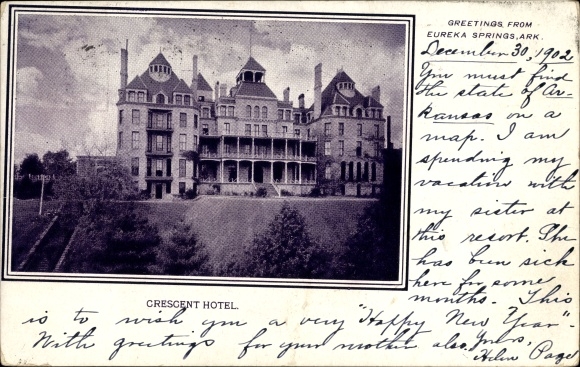 GREETINGS FROM
EUREKA SPRINGS, ARK.
December 30, 1902
You must find
the state of Ar-
kansas on a
map. I am
spending my
vacation with
my sister at
this resort. She
has been sick
here for some
months. This
CRESCENT HOTEL.
is to wish you a very "Happy New Year".
With greetings for your mother also. Yours,
Helen Page